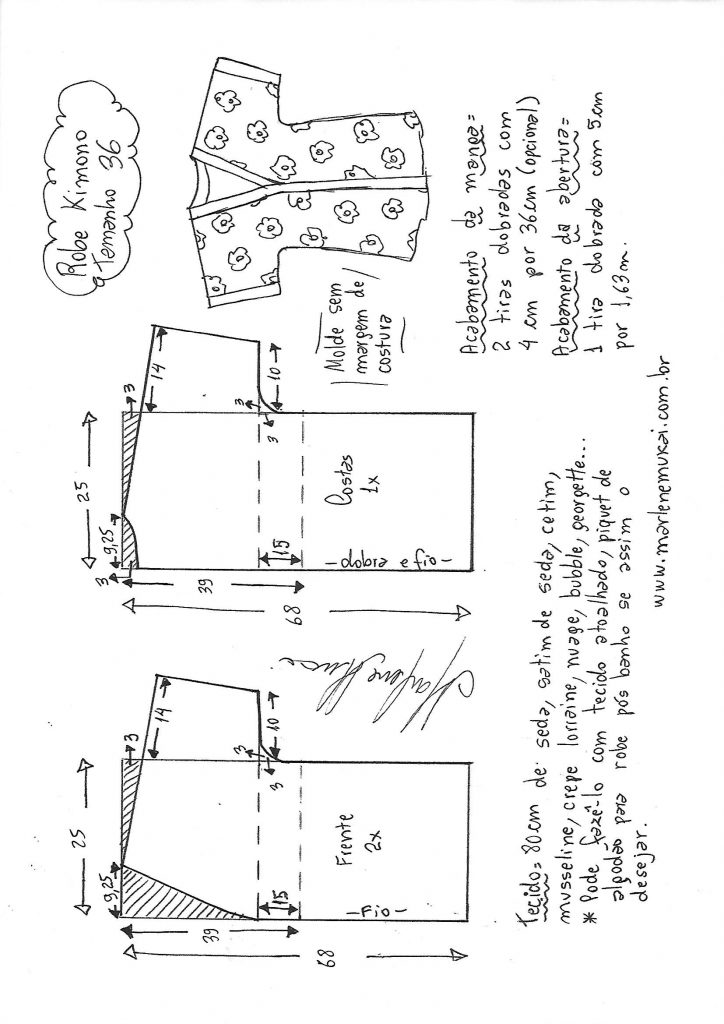 Robe Kimono
Tamanho 36
25
3
14
9,25
3
10
3
3
15
39
68
Costas
1x
-dobra e fio-
Molde sem
margem de
costura
Acabamento da manga=
2 tiras dobradas com
4 cm por 36cm (opcional)
Acabamento da abertura=
1 tira dobrada com 5cm
por 1,63m.
25
3
14
9,25
10
3
3
15
39
68
Frente
2x
-Fio-
Tecido= 80cm de seda, satim de seda, cetim,
musseline, crepe lorraine, nuage, bubble, georgette...
* Pode fazê-lo com tecido atoalhado, piquet de
algodão para robe pós banho se assim o
desejar.
www.marlenemukai.com.br